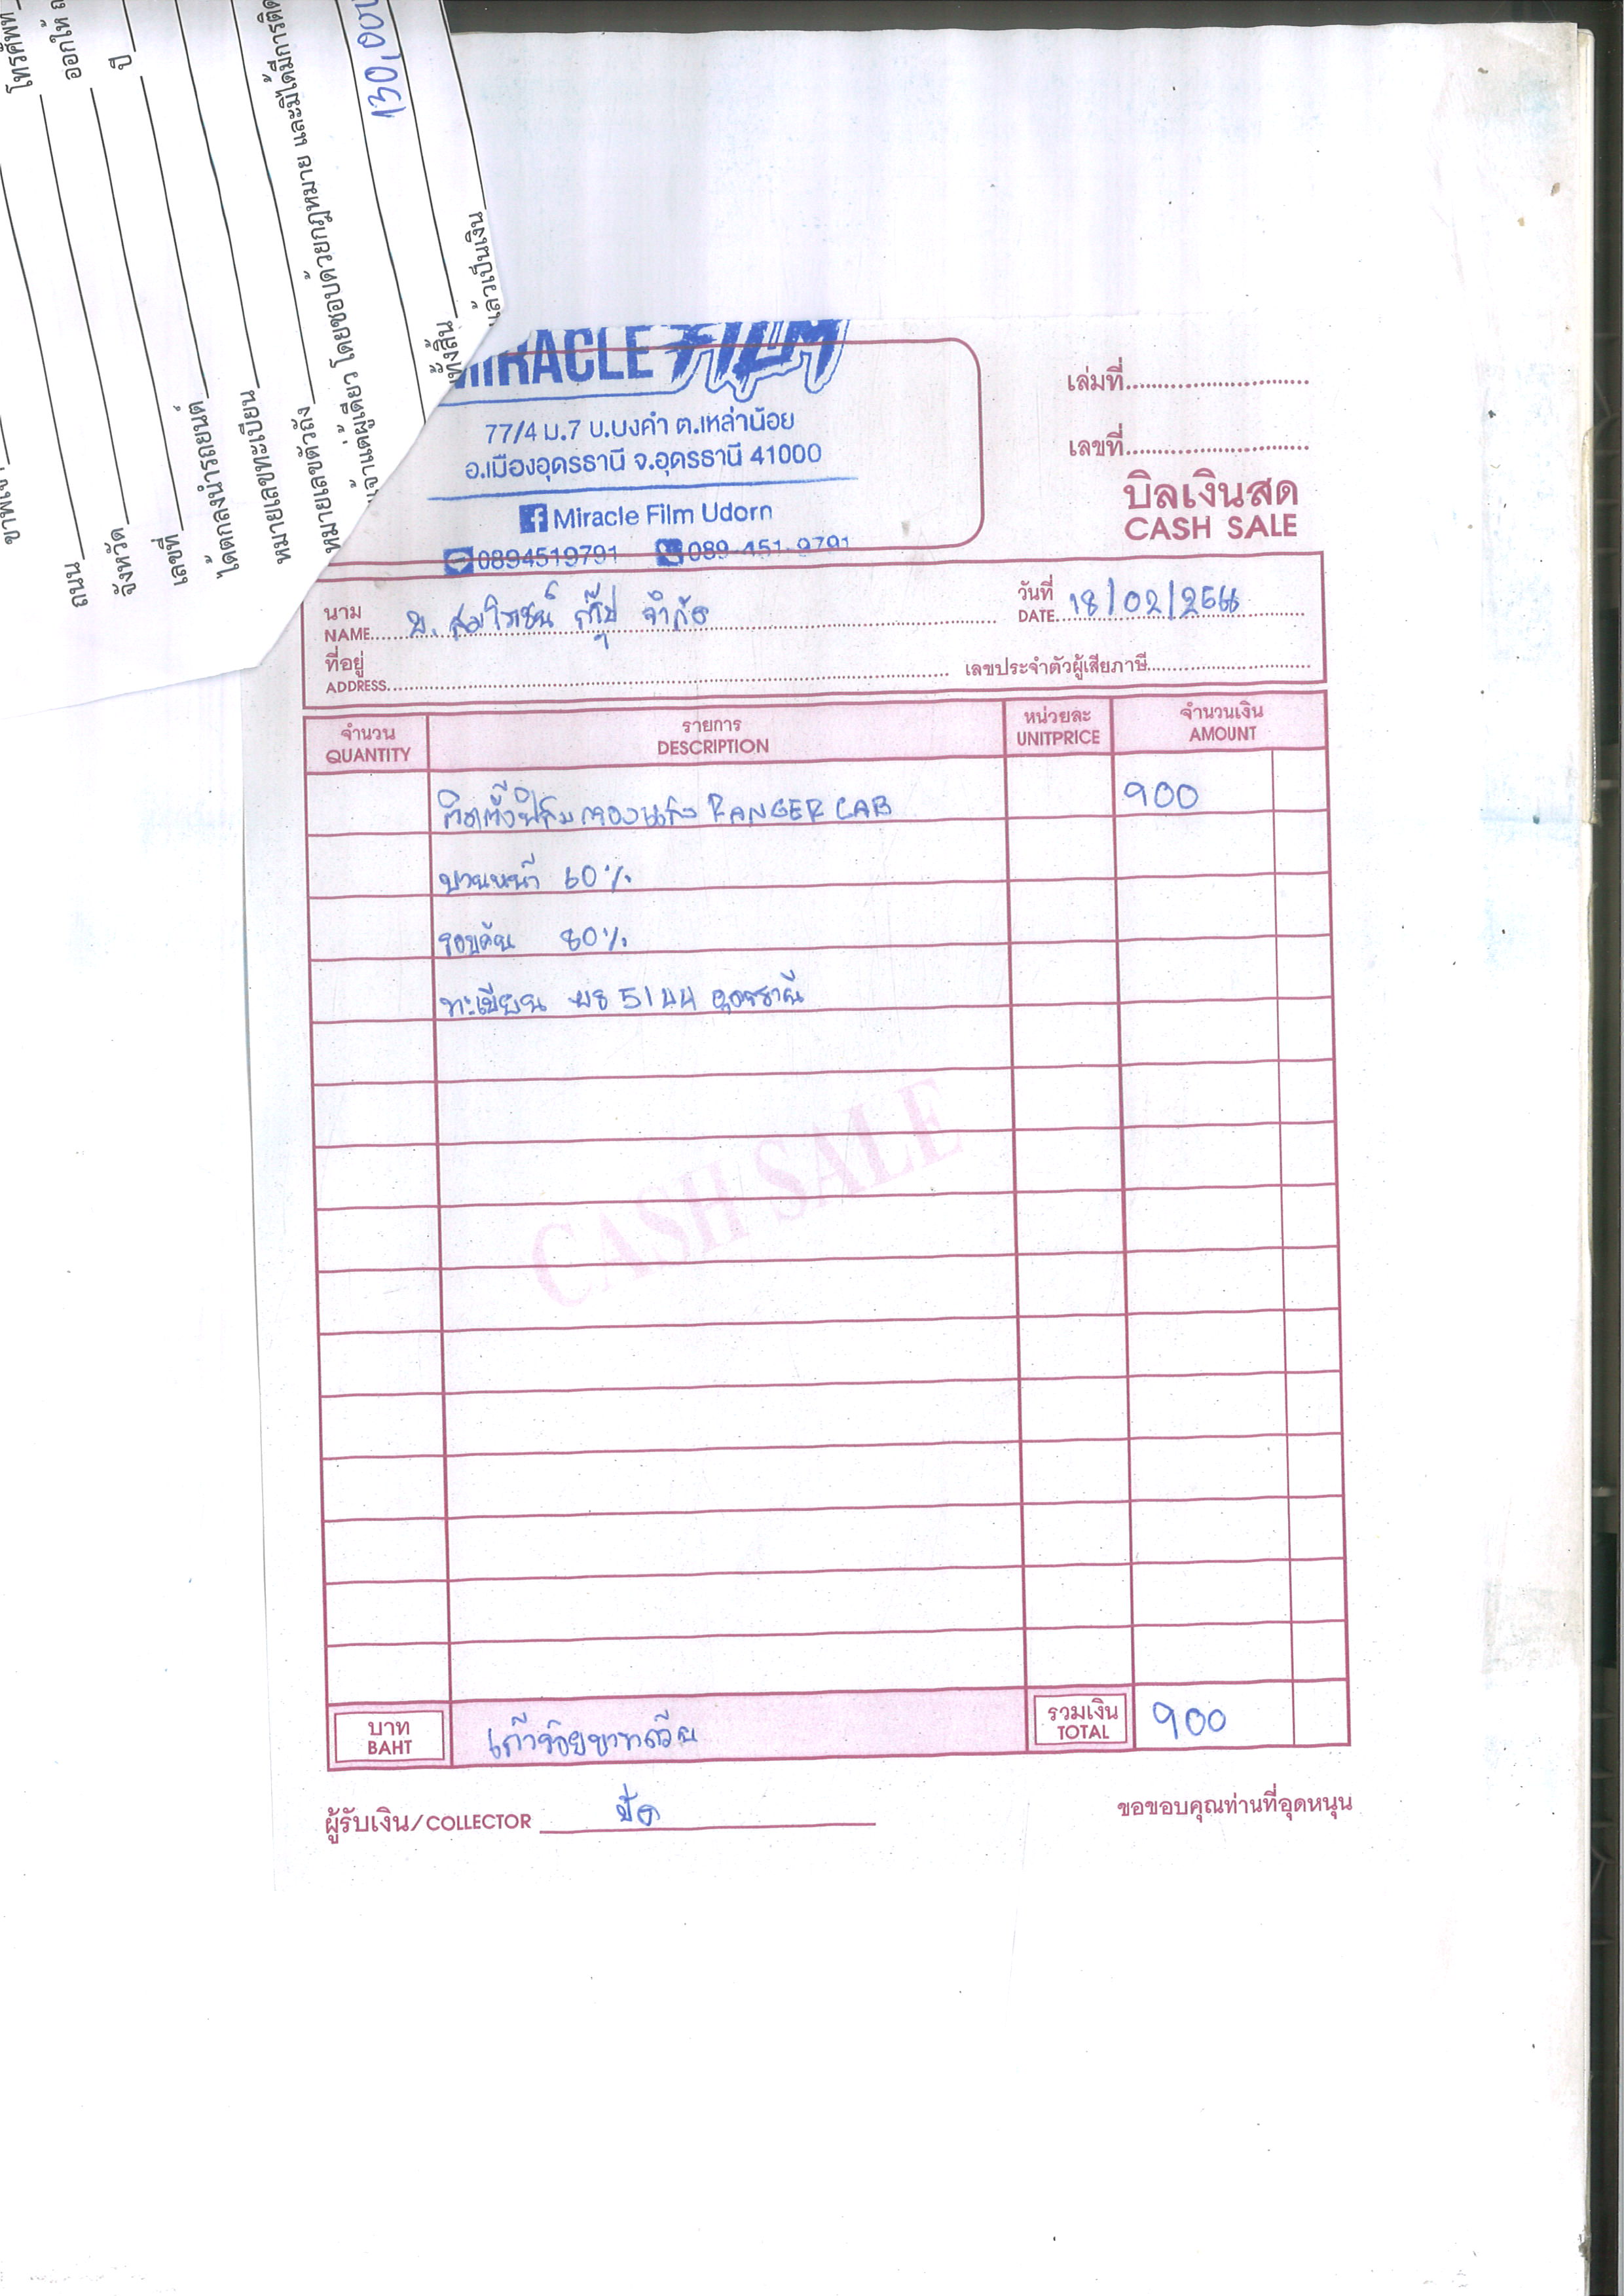 โทรศัพท์
ออกให้
ถนน
จังหวัด
ปี
เลขที่
ได้ตกลงนำรถยนต์
หมายเลขทะเบียน
หมายเลขตัวถัง
เจ้าแต่ผู้เดียว โดยชอบด้วยกฎหมาย และมิได้มีการติด
130,000
ทั้งสิ้น
แล้วเป็นเงิน
MIRACLE FILM
77/4 ม.7 บ.บงคำ ต.เหล่าน้อย
อ.เมืองอุดรธานี จ.อุดรธานี 41000
Miracle Film Udorn
0894519791 089-451-9791
เล่มที่
เลขที่
บิลเงินสด
CASH SALE
นาม
NAME บ. สมโรชน์ กรุ๊ป จำกัด
วันที่
DATE 18/02/2566
ที่อยู่
ADDRESS
เลขประจำตัวผู้เสียภาษี
จำนวน รายการ หน่วยละ จำนวนเงิน
QUANTITY DESCRIPTION UNITPRICE AMOUNT
ติดตั้งฟิล์มกรองแสง RANGER CAB 900
บานหน้า 60%
รอบคัน 80%
ทะเบียน 5144 อุดรธานี
CASH SALE
บาท
BAHT
เก้าร้อยบาทถ้วน
รวมเงิน
TOTAL
900
ผู้รับเงิน/COLLECTOR
ขอขอบคุณท่านที่อุดหนุน